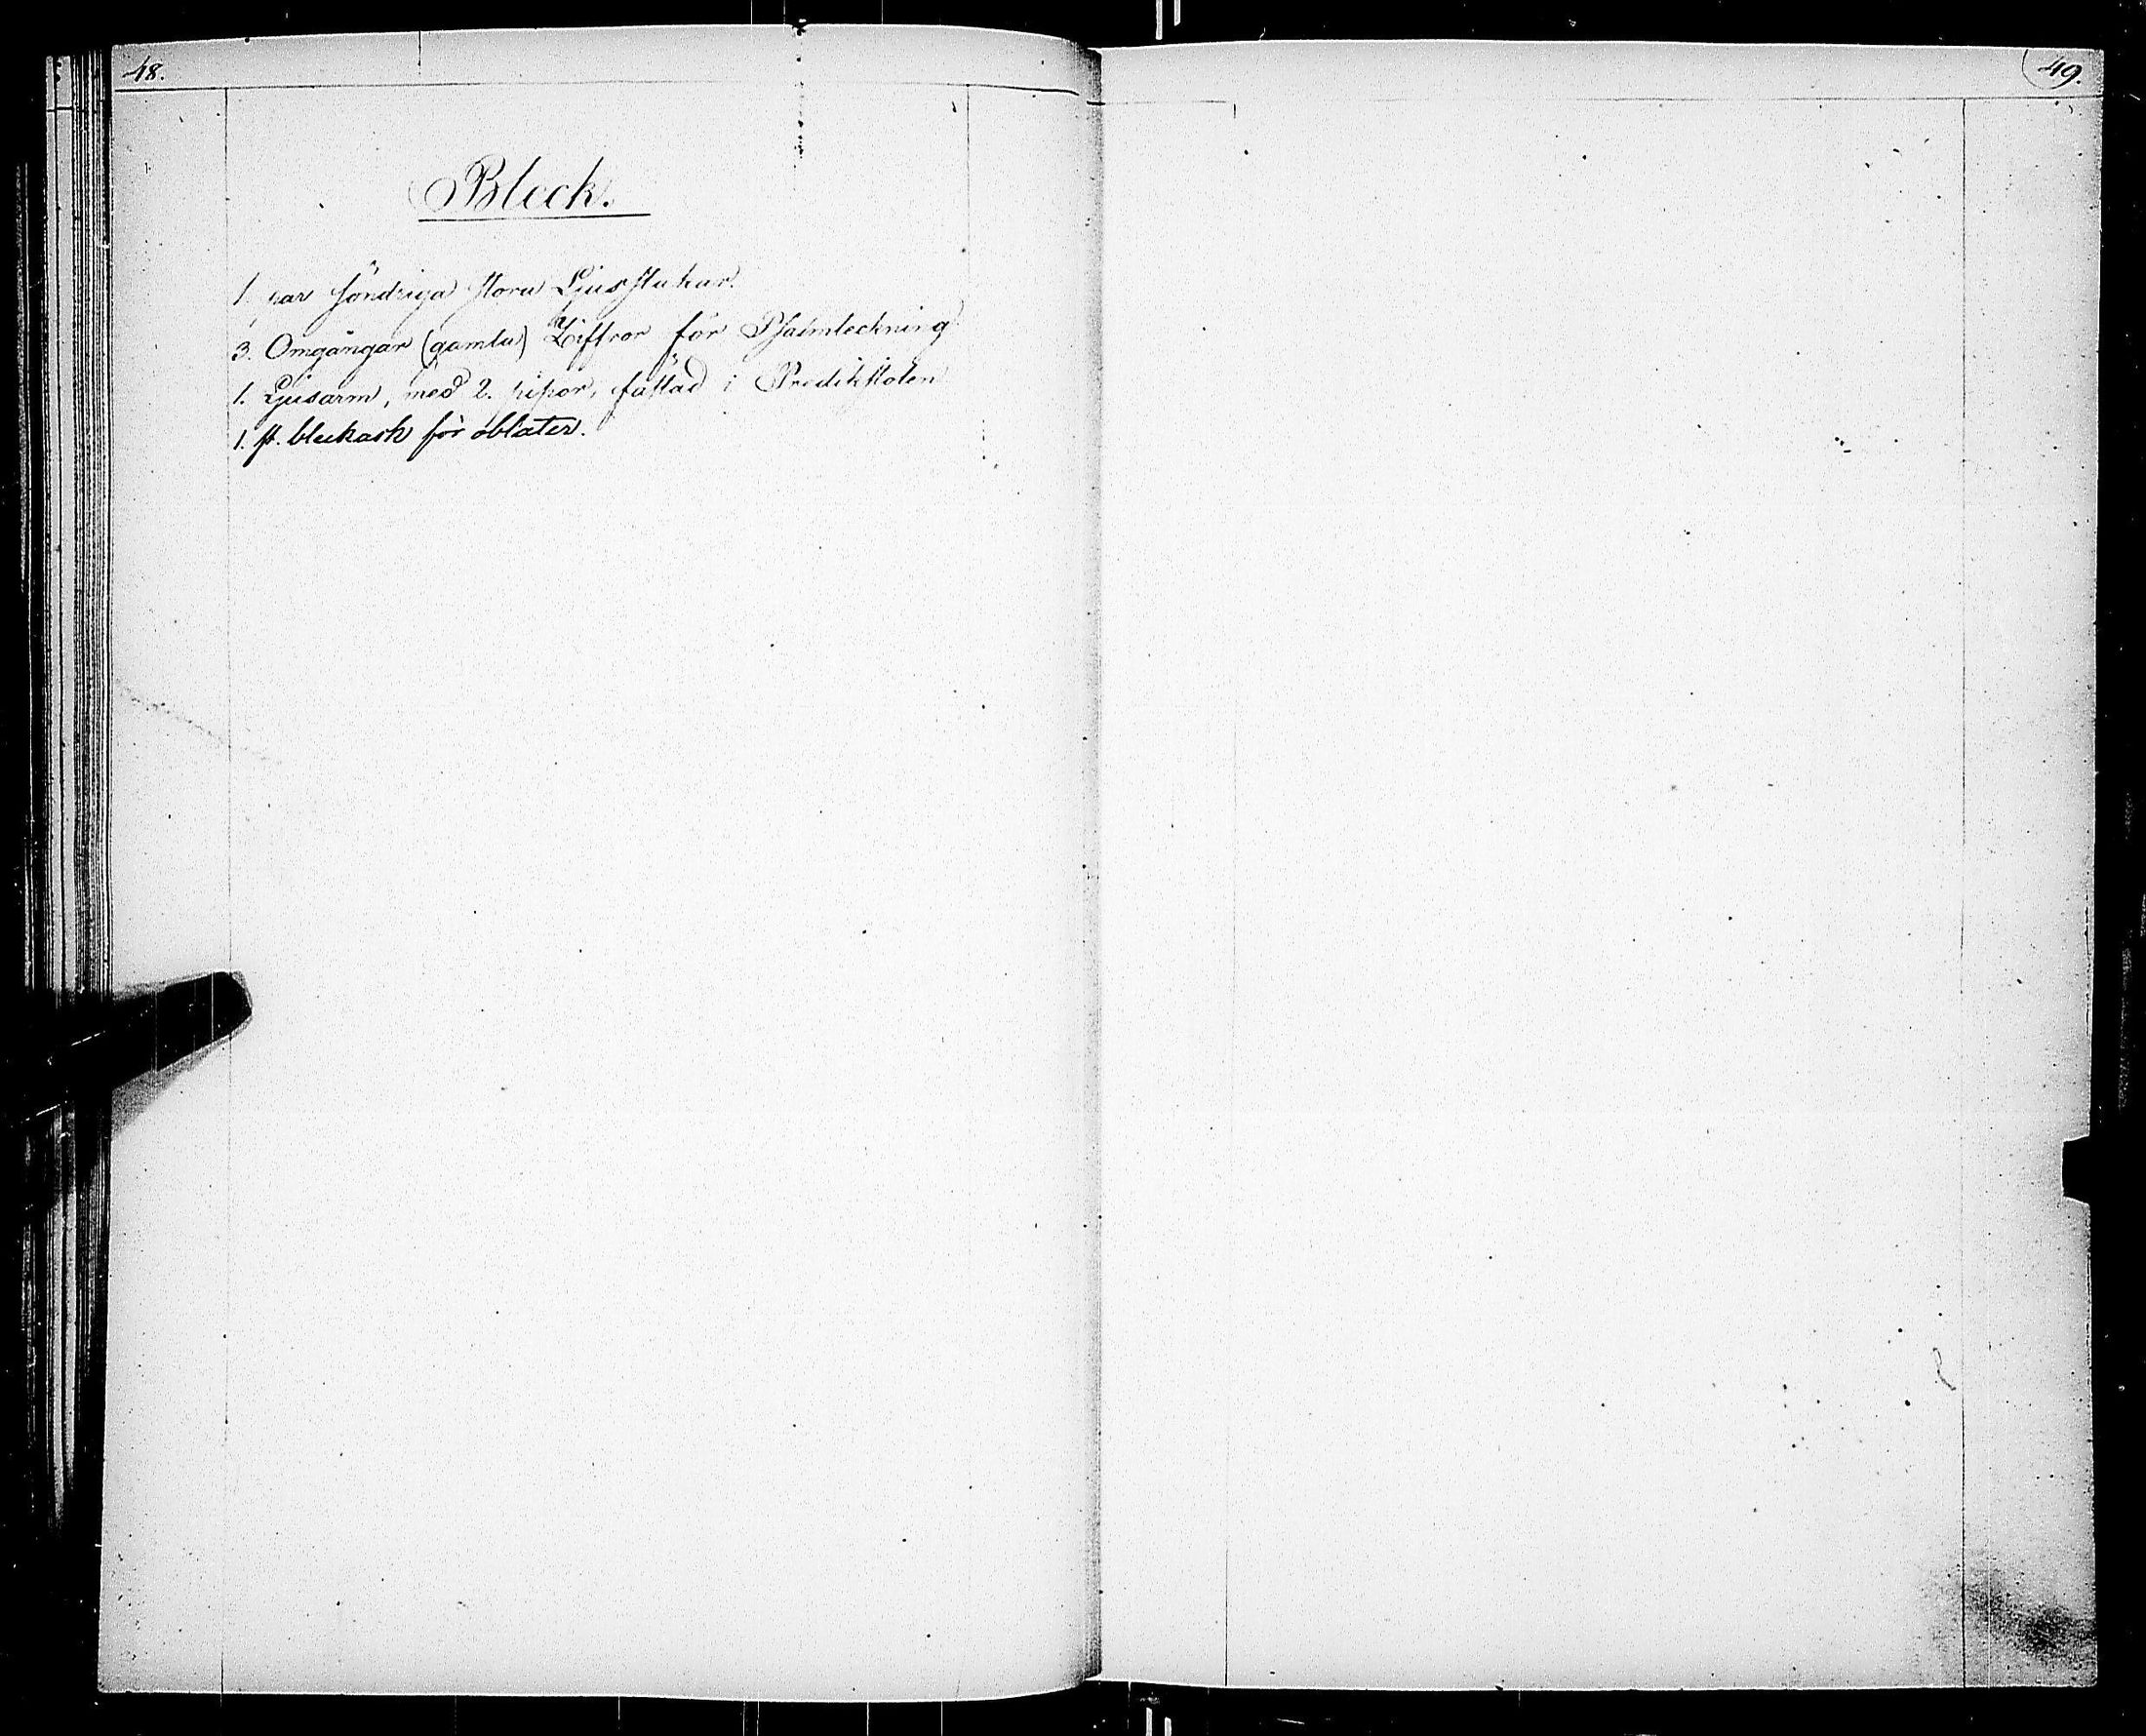 48.
Bleck.
1. par söndriga stora Ljusstakar.
3. Omgångar (gamla) Ziffror för Psalmteckning
1. Ljusarm, med 2. pipor, fästad i Predikstolen
1. st. bleckask för oblater.
49.